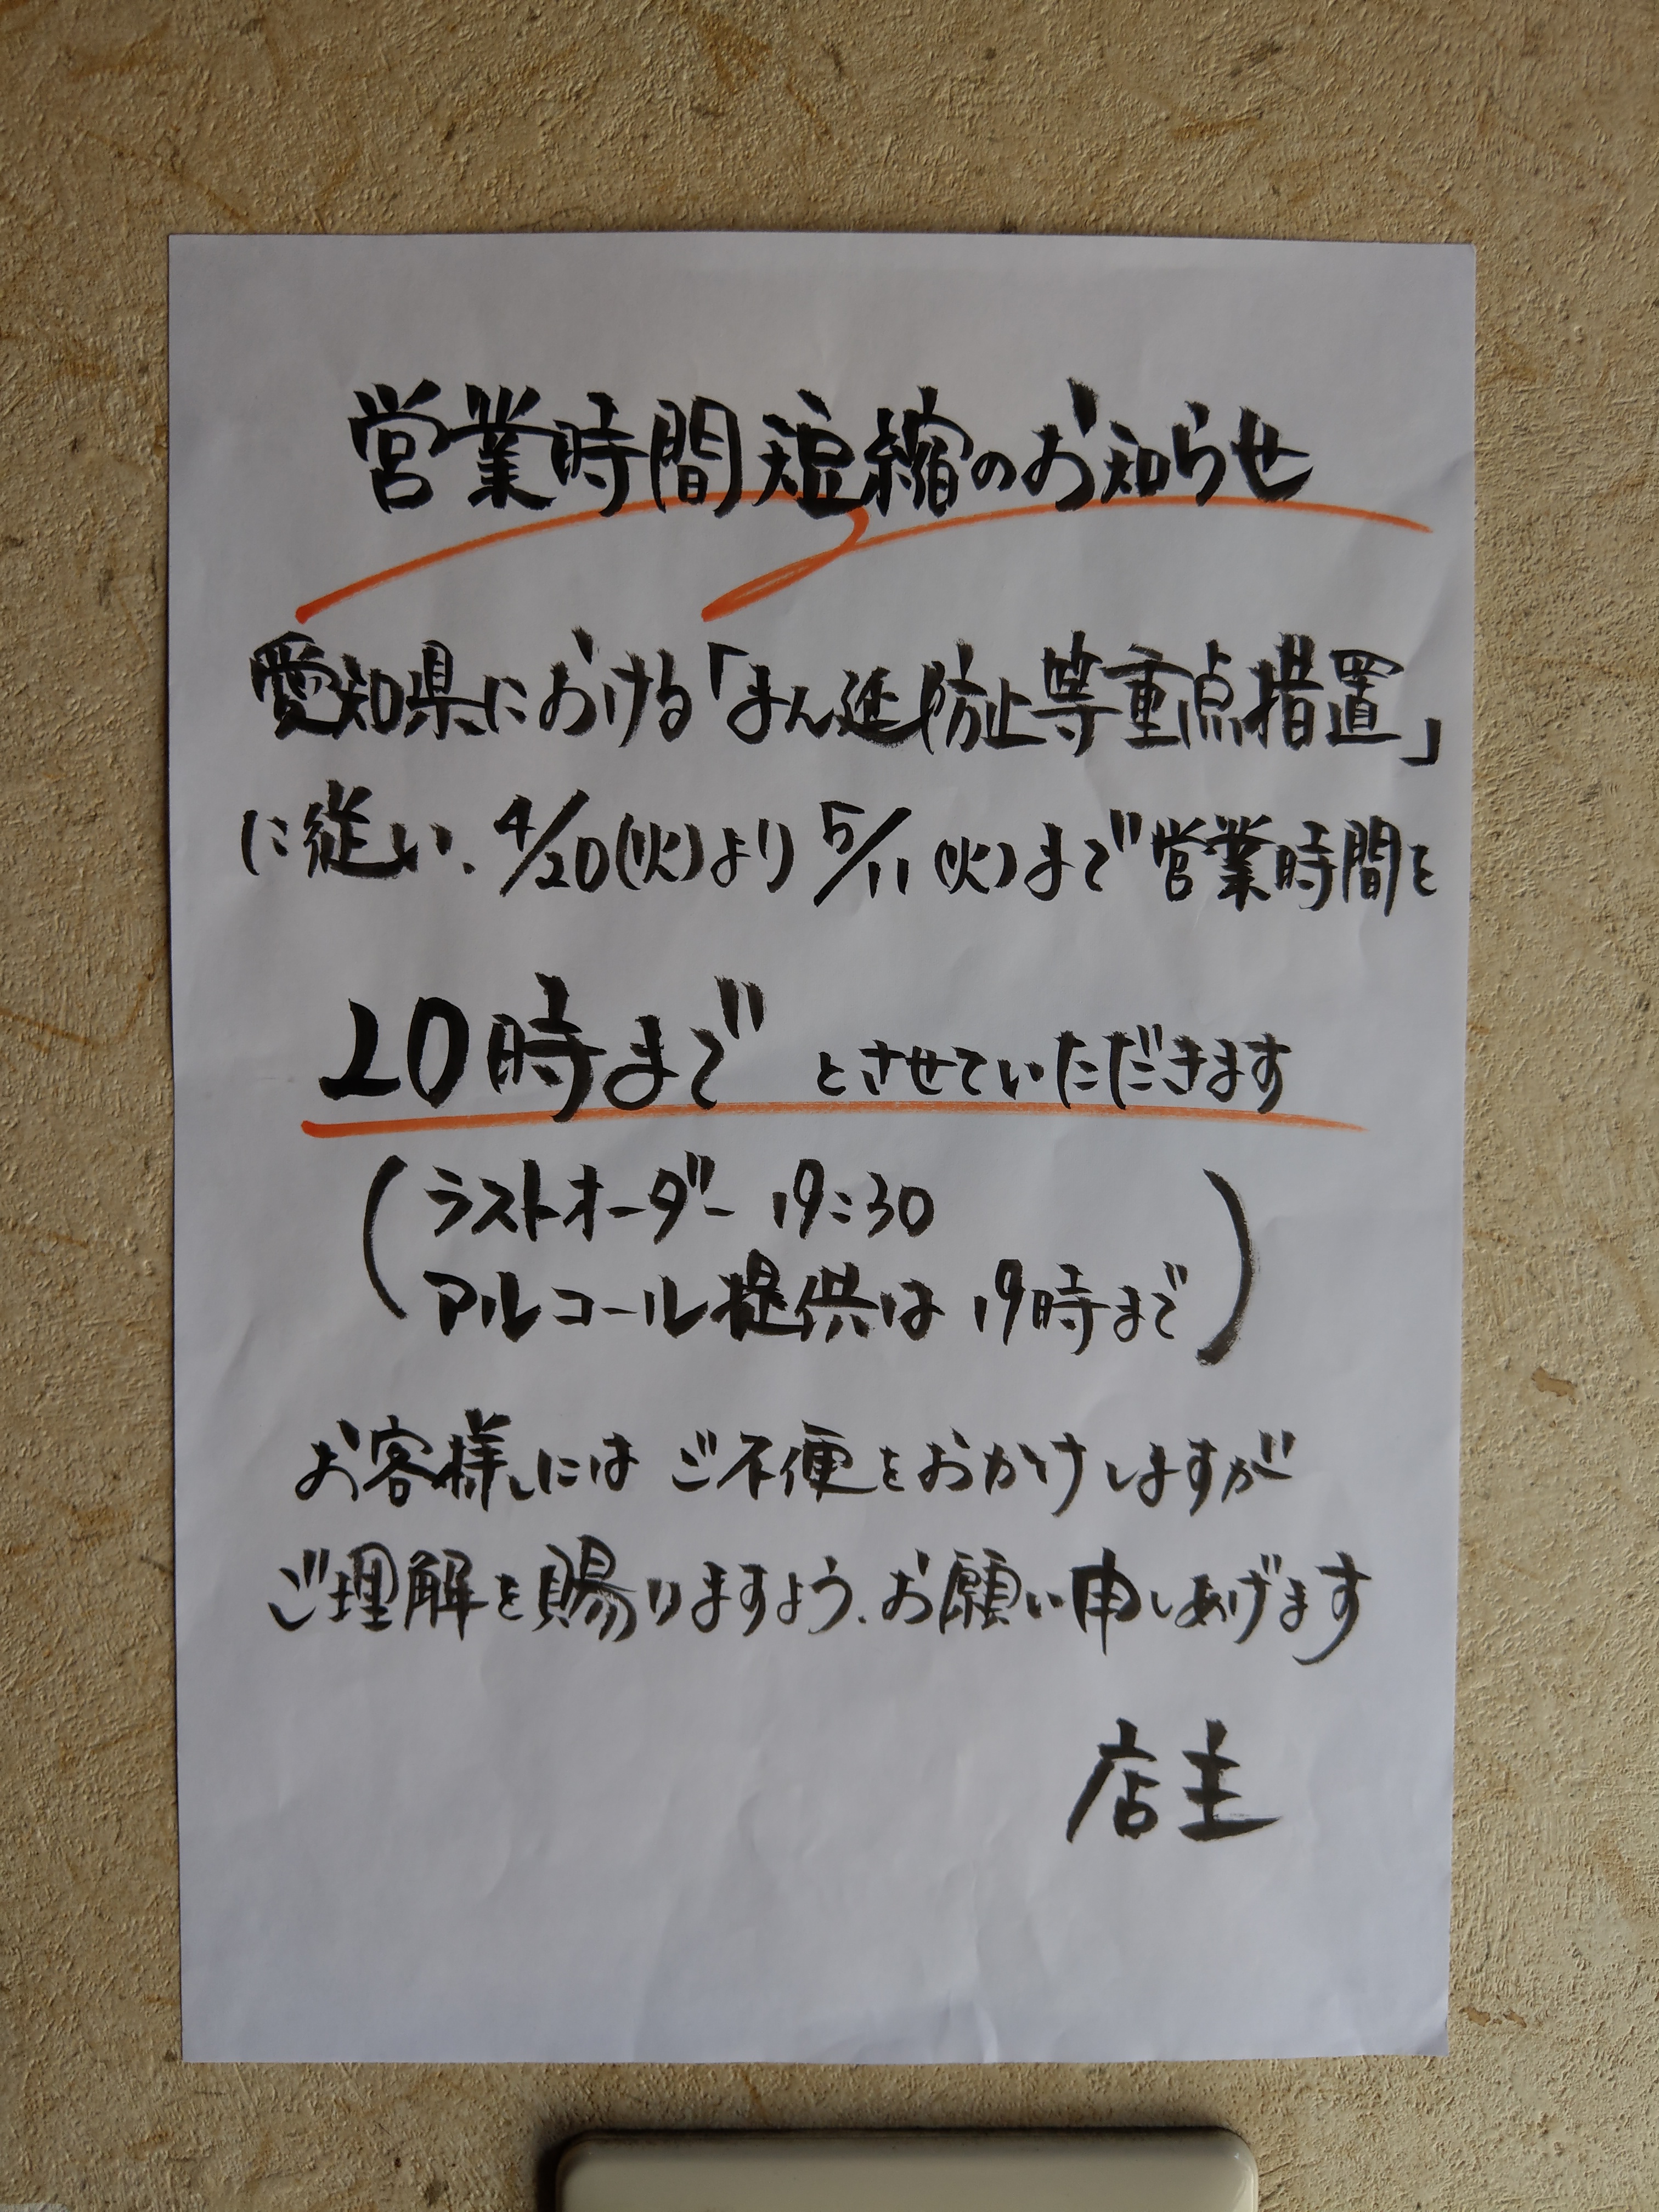 営業時間短縮のお知らせ
愛知県における「まん延防止等重点措置」
に従い、4/20(火)より5/11(火)まで営業時間を
20時まで とさせていただきます
(ラストオーダー 19:30
アルコール提供は 19時まで)
お客様にはご不便をおかけしますが
ご理解を賜りますよう、お願い申しあげます
店主